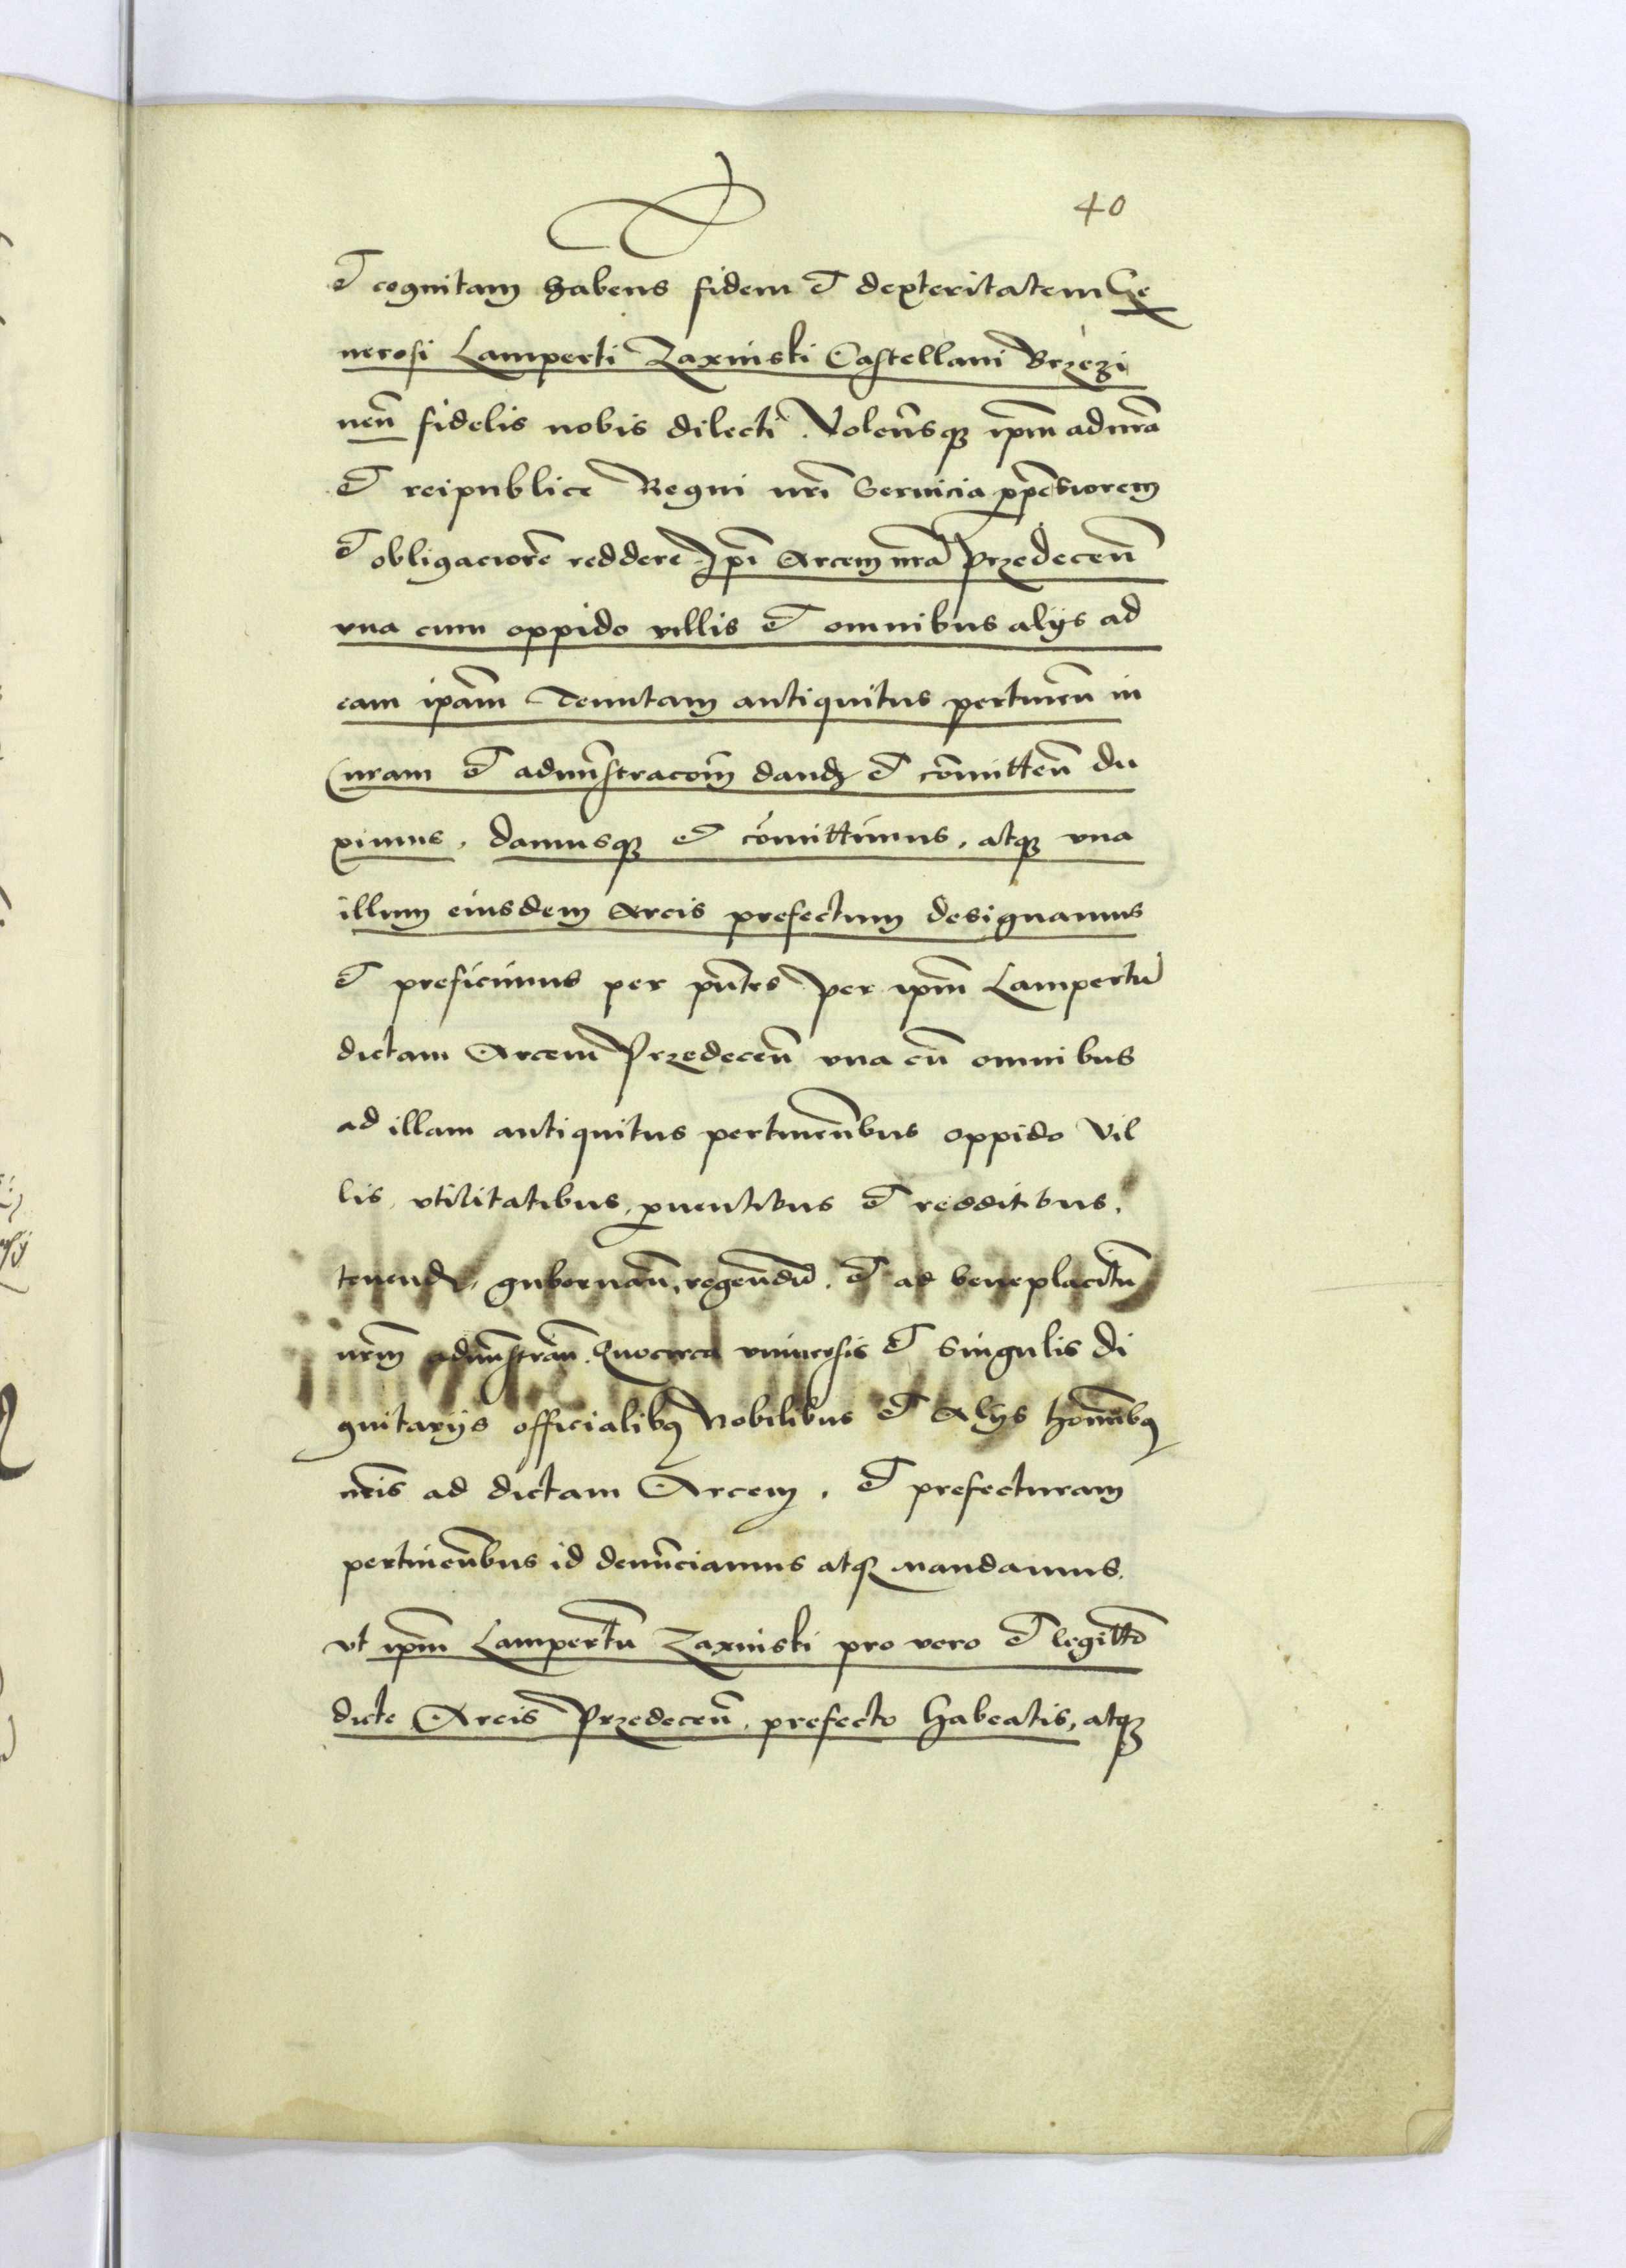 40
et cognitam habens fidem et dexteritatem Ge
nerosi Lamperti Zaxinski Castellani Brzezi
nen̄ fidelis nobis dilecti. Volen̄sq; ip̄m ad nr̄a
et reipublice Regni nr̄i Seruicia
et obligaciorē reddere Ip̄i Arcem nr̄ā Przedecen̄
vna cum oppido villis et omnibus alijs ad
eam ip̄am Tenutam antiquitus pertinen̄ in
Curam et admin̄stracōm dand et cōmitten̄ du
ximus, damusq; et cōmittimus, atq; vna
illum eiusdem Arcis prefectum designamus
et preficimus per pn̄tes per ip̄m Lampertū
dictam Arcem Przedecen̄ vna cū omnibus
ad illam antiquitus pertinen̄bus oppido vil
lis, vtilitatibus, ꝓuentibus et redditibus,
tenend, gubernan̄, regendū, et ad beneplacitū
nr̄m admn̄stran̄. Quocirca vniuersis et singulis di
gnitarijs officialibq Nobilibus et Alijs hoīnibq
nr̄is ad dictam Arcem, et prefecturam
pertinen̄bus id denūciamus atq; mandamus.
vt ip̄m Lampertū Zaxinski pro vero et legitt̄o
dicte Arcis Przedecen̄, prefecto habeatis, atq;